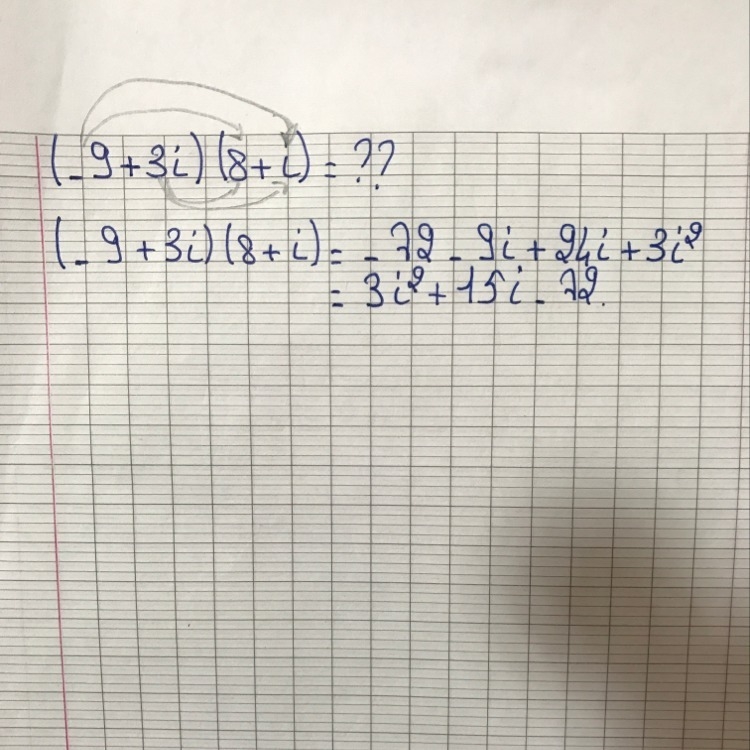 (-9+3i)(8+i) = ??
(-9+3i)(8+i) = -72-9i+24i+3i²
= 3i²+15i-72.